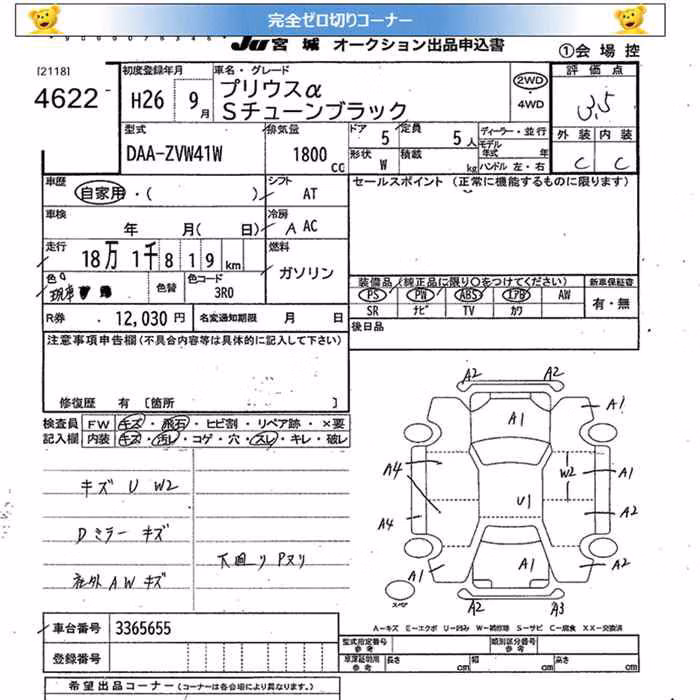 完全ゼロ切りコーナー
JU 宮城 オークション出品申込書
①会場控
[2118]
4622
初度登録年月
H26 9月
車名・グレード
プリウスα
Sチューンブラック
2WD
・
4WD
評価点
3.5
外装 内装
C C
型式
DAA-ZVW41W
排気量
1800 cc
ドア 5
定員 5人
形状 W
積載 kg
ディーラー・並行
モデル年式 年
ハンドル 左・右
車歴
自家用・( )
シフト
AT
車検
年 月( 日)
冷房
A AC
走行
18万 1千 8 1 9 km
燃料
ガソリン
色
色替
色コード
3R0
R券 12,030円
名変通知期限 月 日
セールスポイント (正常に機能するものに限ります)
装備品 (純正品に限り○をつけてください)
新車保証書
PS PW ABS エアB AW
SR ナビ TV カワ
有・無
後日品
注意事項申告欄(不具合内容等は具体的に記入して下さい)
修復歴 有 [箇所
検査員記入欄
FW キズ・飛石・ヒビ割・リペア跡・×要
内装 キズ・汚レ・コゲ・穴・スレ・キレ・破レ
キズ U W2
Dミラー キズ
社外AW キズ
下回り Pヌリ
A2 A2
A1 A1
A4 W2 A1
A4 U1 A2
A1 A1 A2
スペア
A2 A3
A-キズ E-エクボ U-凹み W-補修跡 S-サビ C-腐食 XX-交換済
車台番号 3365655
登録番号
型式指定番号 参考
類別区分番号 参考
車庫証明用 参考 長さ cm 幅 cm 高さ cm
希望出品コーナー (コーナーは各会場により異なります。)